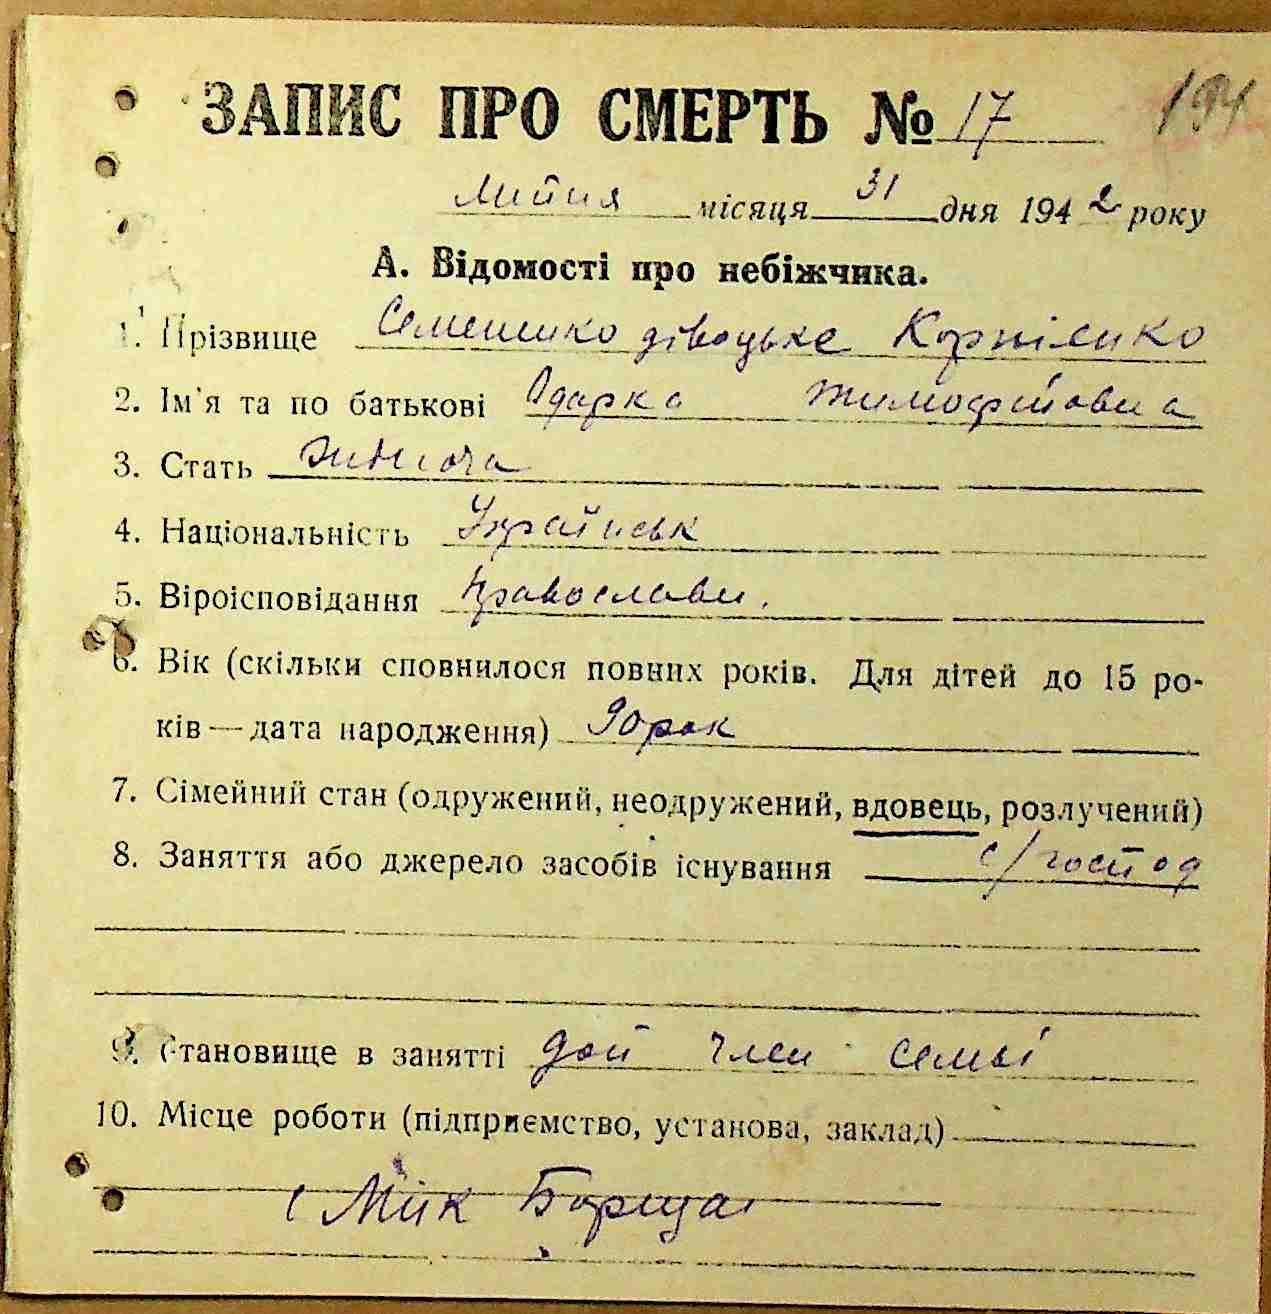 ЗАПИС ПРО СМЕРТЬ № 17
194
липня місяця 31 дня 1942 року
А. Відомості про небіжчика.
1. Прізвище Семешко дівоцьке Корнієнко
2. Ім'я та по батькові Одарка Тимофійовна
3. Стать жіноча
4. Національність Українськ
5. Віроісповідання православн.
6. Вік (скільки сповнилося повних років. Для дітей до 15 ро-
ків — дата народження) 90 рок
7. Сімейний стан (одружений, неодружений, вдовець, розлучений)
8. Заняття або джерело засобів існування с/господ
9. Становище в занятті член семьї
10. Місце роботи (підприємство, установа, заклад)